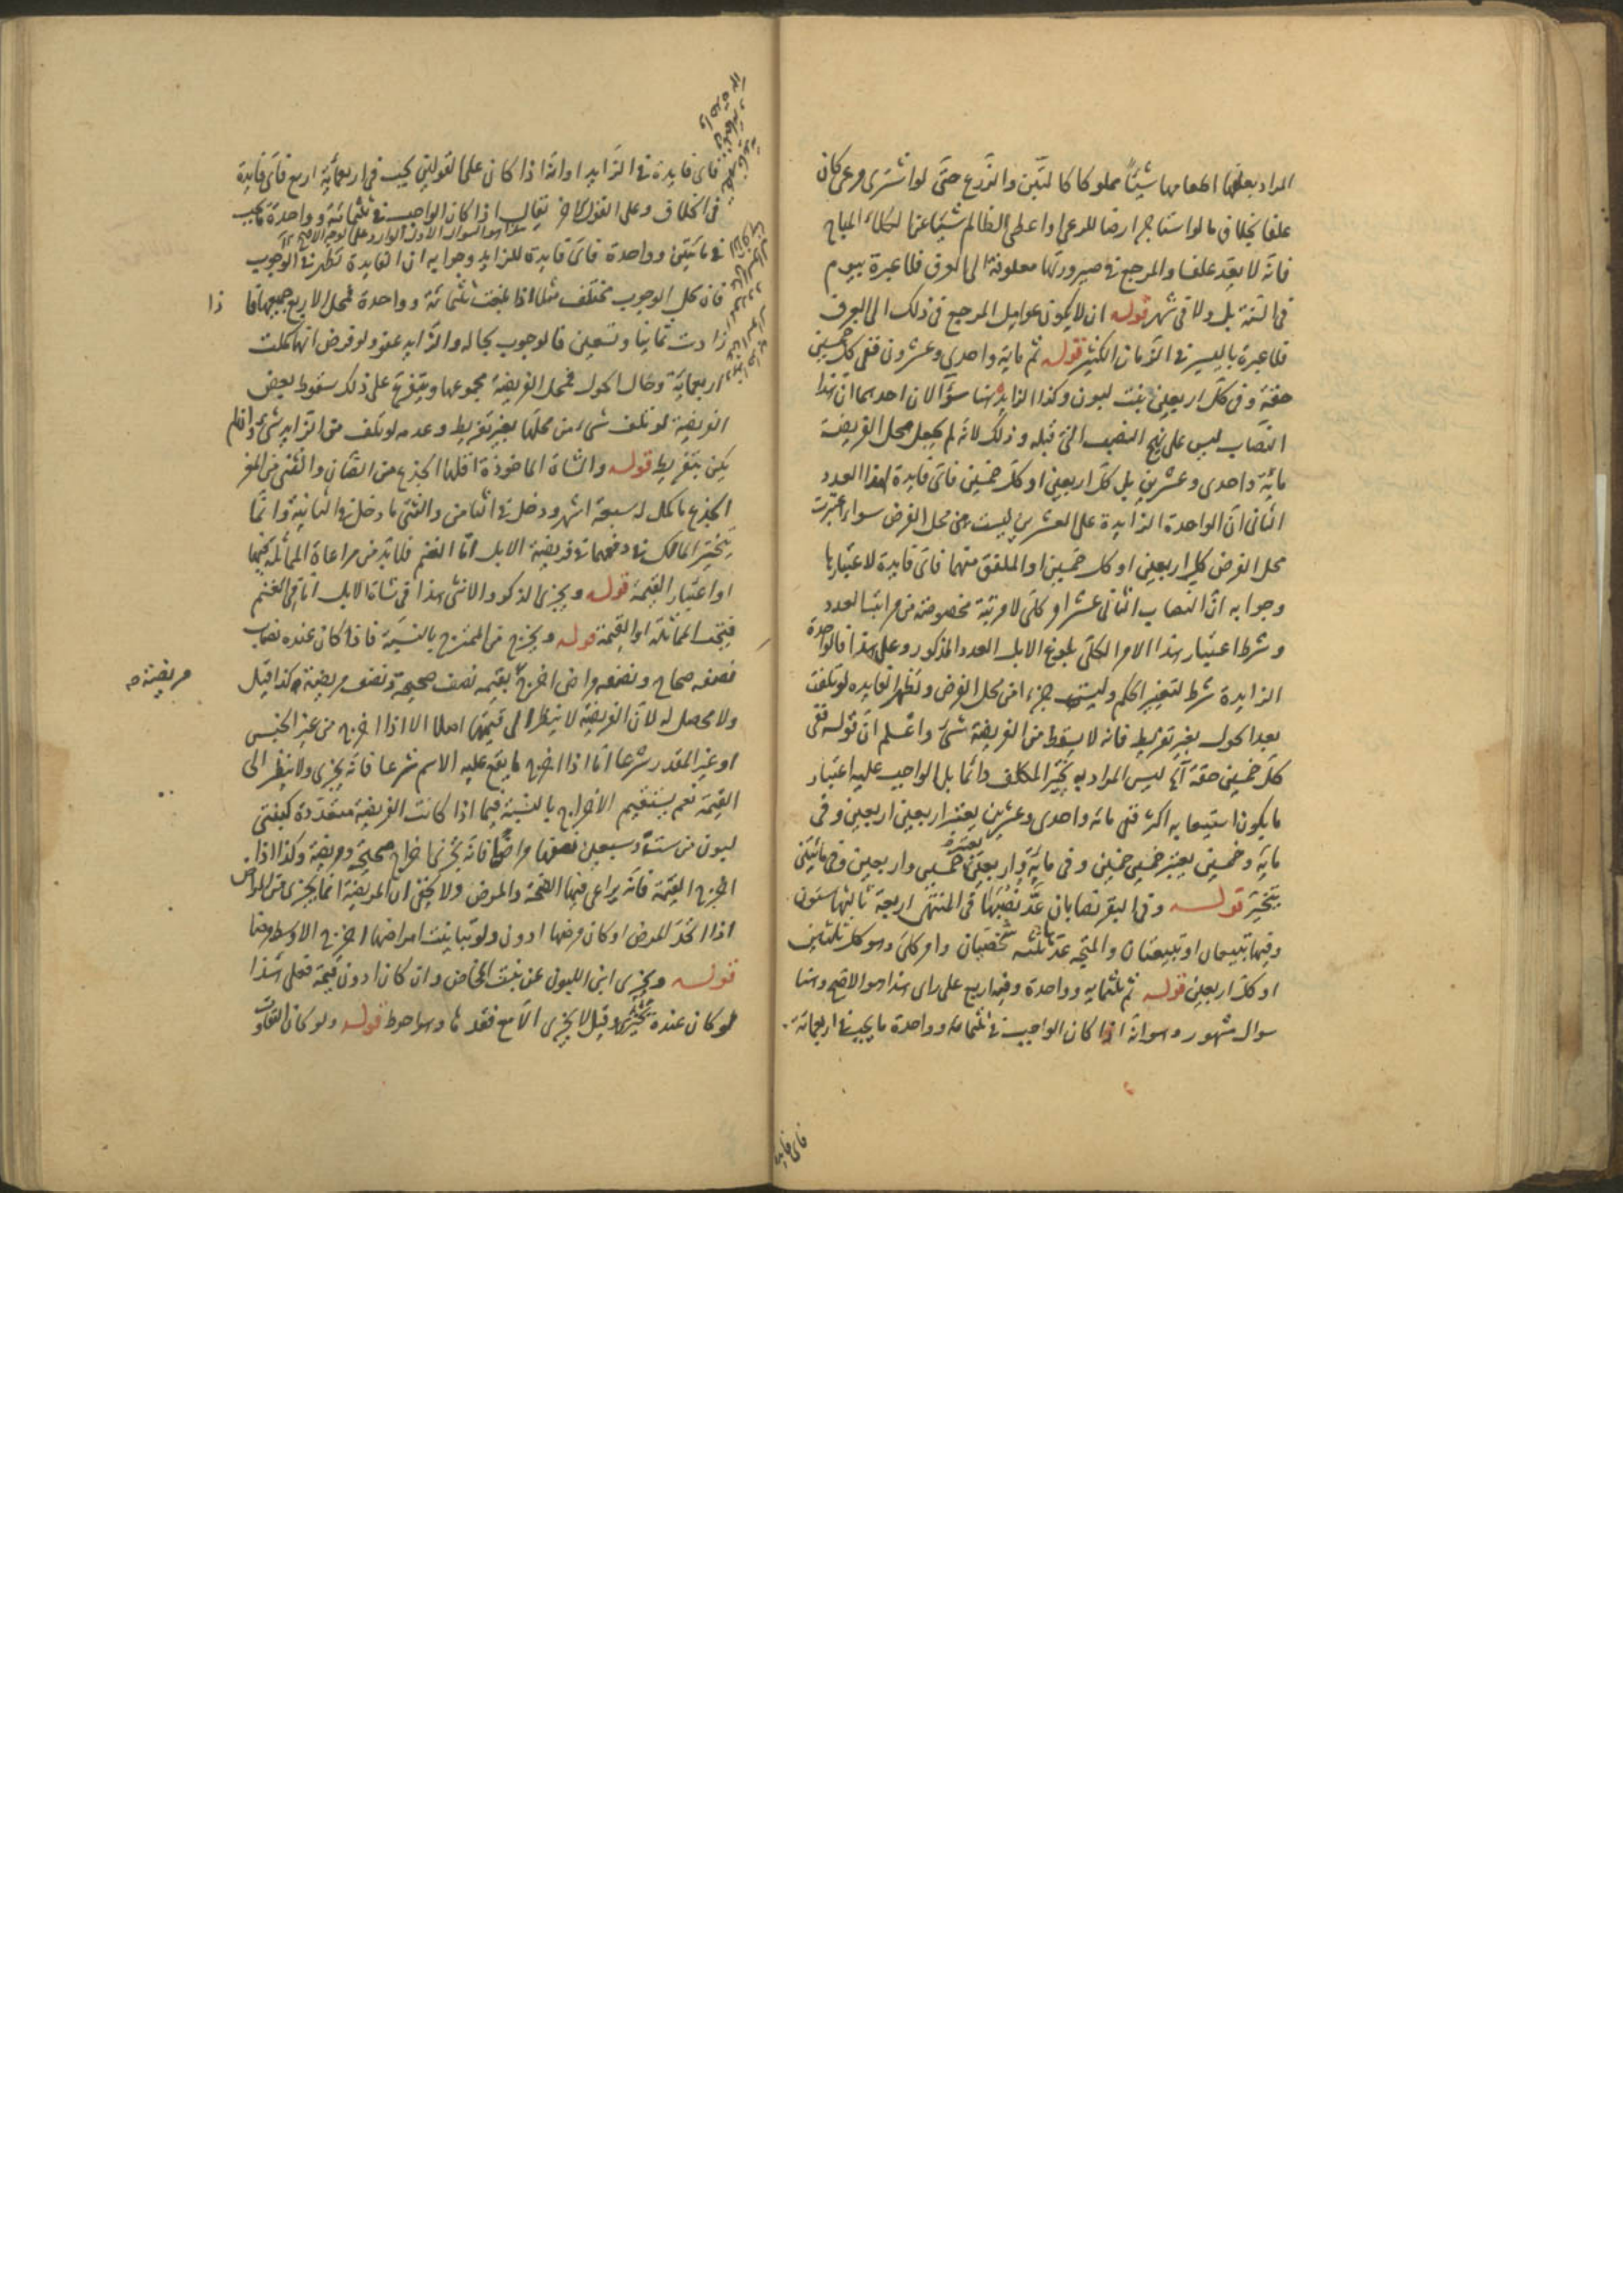 المراد بعلفها اطعامها شيئا مملوكا كالتبن والزرع حتى لو اشترى مرعى كان
علفا بخلاف ما لو استاجر ارضا للرعى او اعطى الظالم شيئا عن الكلاء المباح
فانه لا يعد علفا والمرجع فى صيرورتها معلوفة الى العرف فلا عبرة بيوم
فى السنة بل ولا فى شهر قوله ان لا يكون عوامل المرجع فى ذلك الى العرف
فلا عبرة باليسير فى الزمان الكثير قوله ثم ماية واحدى وعشرون ففى كل خمسين
حقة وفى كل اربعين بنت لبون وكذا الزايد هنا سؤالان احدهما ان هذا
النصاب ليس على نهج النصب التى قبله وذلك لانه لم يجعل محل الفريضة
ماية واحدى وعشرين بل كل اربعين او كل خمسين فاى فايدة لهذا العدد
الثانى ان الواحدة الزايدة على العشرين ليست من محل الفرض سواء اعتبرت
محل الفرض كل اربعين او كل خمسين او الملفق منهما فاى فايدة لاعتبارها
وجوابه ان النصاب الثانى عشر امر كلى لا مرتبة مخصوصة من مراتب العدد
وشرط اعتبار هذا الامر الكلى بلوغ الابل العدد المذكور وعلى هذا فالواحدة
الزايدة شرط لتغير الحكم وليست جزءا من محل الفرض وتظهر الفايده لو تلفت
بعد الحول بغير تفريط فانه لا يسقط من الفريضة شئ واعلم ان قوله ففى
كل خمسين حقة آه ليس المراد به تخير المكلف دائما بل الواجب عليه اعتبار
ما يكون استيعابه اكثر ففى مائه واحدى وعشرين يعتبر اربعين اربعين وفى
ماية وخمسين يعتبر خمسين خمسين وفى ماية واربعين يعتبر خمسين واربعين وفى مائتين
يتخير قوله وفى البقر نصابان عد نصبها فى المنتهى اربعة ثالثها ستون
وفيها تبيعان او تبيعتان والمتجه عد ثلثه شخصيان وامر كلى وهو كل ثلثين
او كل اربعين قوله ثم ثلثمايه وواحدة وفيه اربع على راى هذا هو الاصح وهنا
سوال مشهور وهو انه اذا كان الواجب فى ثلثمائه وواحدة ما يجب فى اربعمائة
فاى فايدة
فاى فايدة فى الزايد او انه اذا كان على القولين يجب فى اربعمائة اربع فاى فايدة
فى الخلاف وعلى القول الاخر يقال اذا كان الواجب فى ثلثمائة وواحدة يجب
فى مائتين وواحدة فاى فايدة للزايد وجوابه ان الفايدة تظهر فى الوجوب
فان محل الوجوب مختلف مثلا اذا بلغت ثلثمائة وواحدة فمحل الاربع جميعها فا ذا
زادت ثمانيا وتسعين فالوجوب بحاله والزايد عفو ولو فرض انها كملت
اربعماية وحال الحول فمحل الفريضة مجموعها ويتفرع على ذلك سقوط بعض
الفريضة لو تلف شئ من محلها بغير تفريط وعدمه لو تلف من الزايد شئ واقلم
يكن بتفريط قوله والشاة الماخوذة اقلها الجذع من الضان والثنى من المعز
الجذع ما كمل له سبعة اشهر ودخل فى الثامن والثنى ما دخل فى الثانية وانما
يتخير المالك فى دفعهما فى فريضة الابل اما الغنم فلا بد من مراعاة المماثلة فيها
او اعتبار القيمة قوله ويجزى الذكر والانثى هذا فى شاة الابل اما فى الغنم
فيتجه المماثلة او القيمة قوله ويخرج من الممتزج بالنسبة فاذا كان عنده نصاب
نصفه صحاح ونصفه مراض اخرج بقيمه نصف صحيحة ونصف مريضة كذا قيل
مريضة صح
ولا محصل له لان الفريضة لا ينظر الى قيمتها اصلا الا اذا اخرج من غير الجنس
او غير المقدر شرعا اما اذا اخرج ما يقع عليه الاسم شرعا فانه يجزى ولا ينظر الى
القيمة نعم يستقيم الاخراج بالنسبة فيما اذا كانت الفريضة متعددة كبنتى
لبون من ست وسبعين نصفها مراضا فانه يجزى اخراج صحيحة ومريضة وكذا اذا
اخرج القيمة فانه يراعى فيها الصحة والمرض ولا يخفى ان المريضة انما يجزى من المراض
اذا اتحد المرض او كان مرضها ادون ولو تباينت امراضها اخرج الاوسط مرضا
قوله ويجزى ابن اللبون عن بنت المخاض وان كان ادون قيمة فعلى هذا
لو كان عنده تخير وقيل لا يجزى الا مع فقدها وهو احوط قوله ولو كان التفاوت